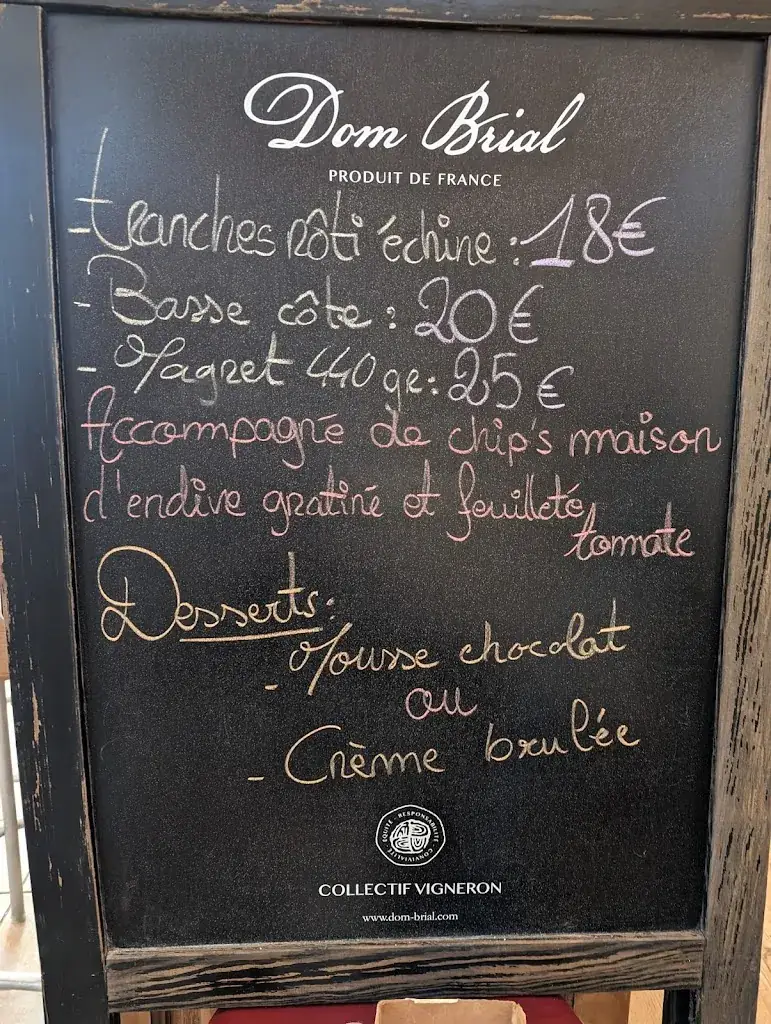 Dom Brial
PRODUIT DE FRANCE
- tranches rôti échine : 18€
- Basse côte : 20€
- Magret 440 gr : 25€
Accompagné de chip's maison
d'endive gratiné et feuilleté
tomate
Desserts :
- Mousse chocolat
ou
- Crème brulée
ÉQUITÉ - RESPONSABILITÉ - CONVIVIALITÉ
COLLECTIF VIGNERON
www.dom-brial.com